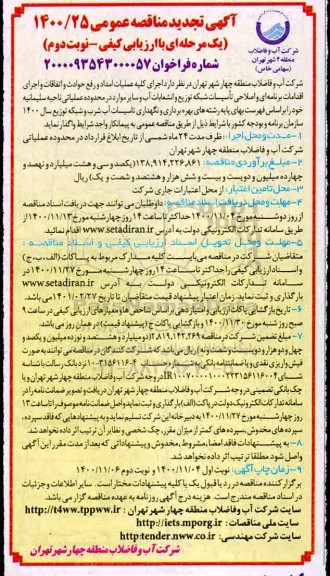 آگهی تجدید مناقصه عمومی ۱۴۰۰/۲۵
(یک مرحله ای با ارزیابی کیفی - نوبت دوم)
شماره فراخوان ۲۰۰۰۰۹۳۵۴۳۰۰۰۰۵۷
شرکت آب و فاضلاب
منطقه ۴ شهر تهران
(سهامی خاص)
شرکت آب و فاضلاب منطقه چهار شهر تهران در نظر دارد اجرای کلیه عملیات امداد و رفع حوادث و اتفاقات و اجرای
اقدامات برنامه ای و اصلاحی تأسیسات شبکه توزیع و انشعابات آب و سایر موارد در محدوده عملیاتی ناحیه سلیمانیه
خود را براساس فهرست بهای پایه رشته بهره برداری و نگهداری تاسیسات آب شرب و شبکه توزیع سال ۱۴۰۰
سازمان برنامه و بودجه کشور با شرایط ذیل از طریق مناقصه عمومی به پیمانکار واجد شرایط واگذار نماید.
۱- مدت و محل اجرا: ظرف مدت ۲۴ ماه شمسی از تاریخ ابلاغ قرارداد در محدوده عملیاتی
شرکت آب و فاضلاب منطقه چهار شهر تهران
۲- مبلغ برآوردی مناقصه: ۱۳۸,۹۱۴,۲۲۶,۸۶۱ (یکصد و سی و هشت میلیارد و نهصد و
چهارده میلیون و دویست و بیست و شش هزار و هشتصد و شصت و یک) ریال
۳- محل تامین اعتبار: از محل اعتبارات جاری شرکت
۴- مهلت و محل دریافت اسناد مناقصه: داوطلبان می توانند جهت دریافت اسناد مناقصه
از روز دوشنبه مورخ ۱۴۰۰/۱۱/۰۴ حداکثر تا ساعت ۱۴ روز چهارشنبه مورخ ۱۴۰۰/۱۱/۱۳ از
طریق سامانه تدارکات الکترونیکی دولت به آدرس www.setadiran.ir اقدام نمایند.
۵- مهلت و محل تحویل اسناد ارزیابی کیفی و اسناد مناقصه:
متقاضیان شرکت در مناقصه می بایست کلیه مدارک مربوط به پاکات (الف، ب، ج)
و اسناد ارزیابی کیفی را حداکثر تا ساعت ۱۴ روز چهارشنبه مورخ ۱۴۰۰/۱۱/۲۷ در
سامانه تدارکات الکترونیکی دولت به آدرس www.setadiran.ir
بارگذاری و ثبت نمایند. زمان اعتبار پیشنهاد قیمت متقاضیان تا تاریخ ۱۴۰۱/۰۲/۲۷ می باشد.
۶- تاریخ بازگشایی پاکات ارزیابی و امتیازدهی براساس شاخص ها و معیارهای ارزیابی کیفی در ساعت ۹
صبح روز شنبه مورخ ۱۴۰۰/۱۱/۳۰ و بازگشایی پاکات ج (پیشنهاد قیمت) در همان روز می باشد.
۷- مبلغ تضمین شرکت در مناقصه
روز چهارشنبه مورخ ۱۴۰۰/۱۱/۲۷ به دبیرخانه این شرکت تسلیم نماید و به پیشنهادهایی که فاقد سپرده،
سپرده های مخدوش، سپرده های کمتر از میزان مقرر، چک شخصی و نظایر آن ترتیب اثر داده نخواهد شد.
۸- به پیشنهادات فاقد امضا، مشروط، مخدوش و پیشنهاداتی که بعد از مدت مقرر این آگهی
واصل شود مطلقا ترتیب اثر داده نخواهد شد.
۹- زمان چاپ آگهی: نوبت اول ۱۴۰۰/۱۱/۰۴ و نوبت دوم ۱۴۰۰/۱۱/۰۶
برگزار کننده مناقصه در رد یا قبول یک یا کلیه پیشنهادات مختار است. سایر اطلاعات و جزئیات
در اسناد مناقصه مندرج است. هزینه درج آگهی روزنامه به عهده مناقصه گزار می باشد.
سایت شرکت آب و فاضلاب منطقه چهار شهر تهران: http://t4ww.tppww.ir
سایت ملی مناقصات: http://iets.mporg.ir
سایت شرکت مهندسی: http://tender.nww.co.ir
شرکت آب و فاضلاب منطقه چهار شهر تهران